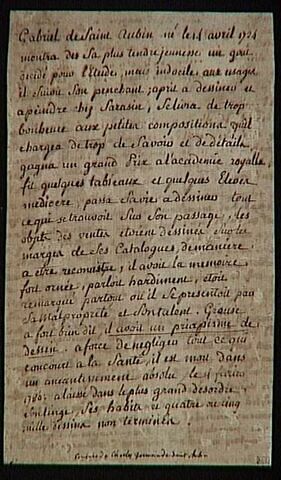 Gabriel de Saint Aubin né le 14 avril 1724
montra dès Sa plus tendre jeunesse un gout
décidé pour l'étude, mais indocile aux usages,
il Suivit Son penchant, aprit a dessiner et
apeindre chez Sarasin, Se livra de trop
bonheure aux petites compositions quil
chargea de trop de Savoir et de détails,
gagna un grand Prix a lacadémie royalle,
fit quelques tableaux et quelques Eleves
médiocre, passa Sa vie a dessiner tout
ce qui se trouvoit Sur Son passage, les
objets des ventes etoient dessinés Sur les
marges de Ses Catalogues, de maniere
a etre reconnus, il avoit la mémoire
fort ornée, parloit hardiment, étoit
remarqué partout ou il Se presentoit par
Sa malpropreté et Son talent. Greuse
a fort bien dit il avoit un priapisme de
dessin. a force de negliger tout ce qui
concourt a la Santé, il est mort dans
un aneantissement absolu le fevrier
1780. a laissé dans le plus grand desordre
Son linge, Ses habits et quatre ou cinq
mille dessins non terminés.
de Charles germain de Saint Aubin